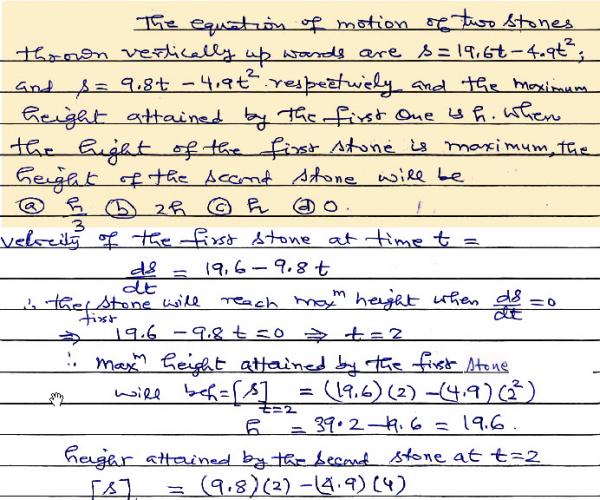 The equation of motion of two stones
thrown vertically up wards are s = 19.6t - 4.9t²;
and s = 9.8t - 4.9t² respectively and the maximum
height attained by the first one is h. when
the hight of the first stone is maximum, the
height of the second stone will be
(a) h/3 (b) 2h (c) h (d) 0.
velocity of the first stone at time t =
ds/dt = 19.6 - 9.8t
∴ the first stone will reach maxᵐ height when ds/dt = 0
⇒ 19.6 - 9.8t = 0 ⇒ t = 2
∴ maxᵐ height attained by the first stone
will be h = [s]t=2 = (19.6)(2) - (4.9)(2²)
h = 39.2 - 19.6 = 19.6.
height attained by the second stone at t = 2
[s] = (9.8)(2) - (4.9)(4)